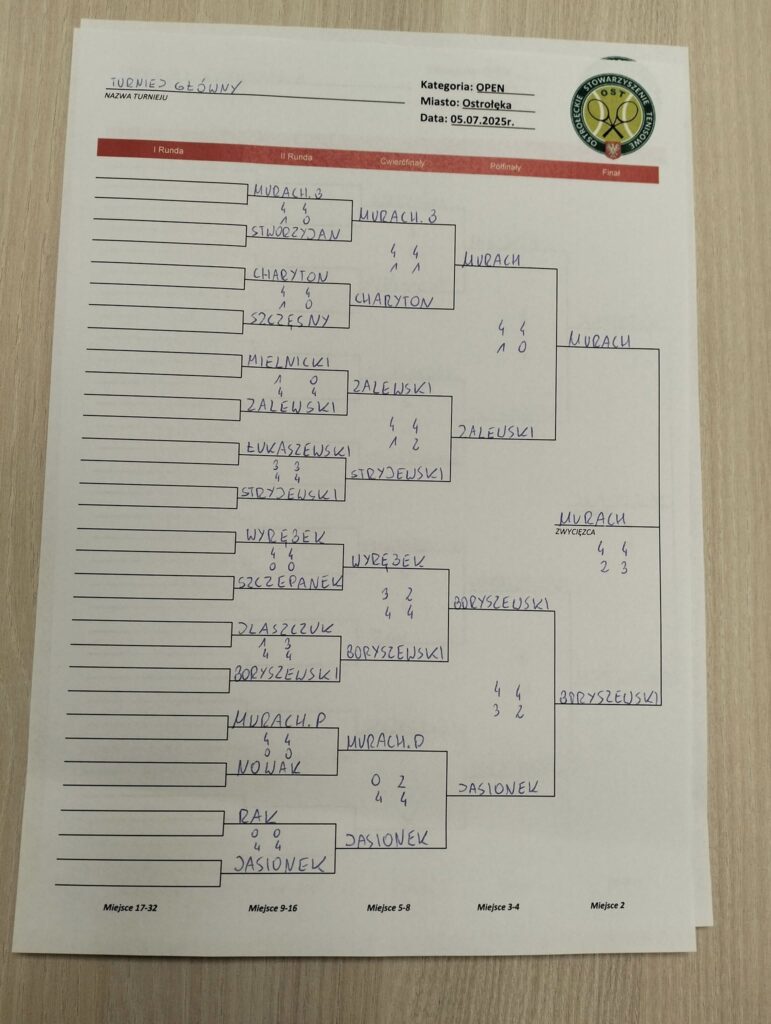 TURNIEJ GŁÓWNY
NAZWA TURNIEJU
Kategoria: OPEN
Miasto: Ostrołęka
Data: 05.07.2025r.
OSTROŁĘCKIE STOWARZYSZENIE TENISOWE
OST
I Runda
II Runda
Ćwierćfinały
Półfinały
Finał
MURACH.B
4 4
1 0
STWORZYJAN
CHARYTON
4 4
1 0
SZCZĘSNY
MIELNICKI
1 0
4 4
ZALEWSKI
ŁUKASZEWSKI
3 3
4 4
STRYJEWSKI
WYRĘBEK
4 4
0 0
SZCZEPANEK
JLASZCZUK
1 3
4 4
BORYSZEWSKI
MURACH.P
4 4
0 0
NOWAK
RAK
0 0
4 4
JASIONEK
MURACH.B
4 4
1 1
CHARYTON
ZALEWSKI
4 4
1 2
STRYJEWSKI
WYRĘBEK
3 2
4 4
BORYSZEWSKI
MURACH.P
0 2
4 4
JASIONEK
MURACH
4 4
1 0
ZALEWSKI
BORYSZEWSKI
4 4
3 2
JASIONEK
MURACH
MURACH
ZWYCIĘZCA
4 4
2 3
BORYSZEWSKI
Miejsce 17-32
Miejsce 9-16
Miejsce 5-8
Miejsce 3-4
Miejsce 2